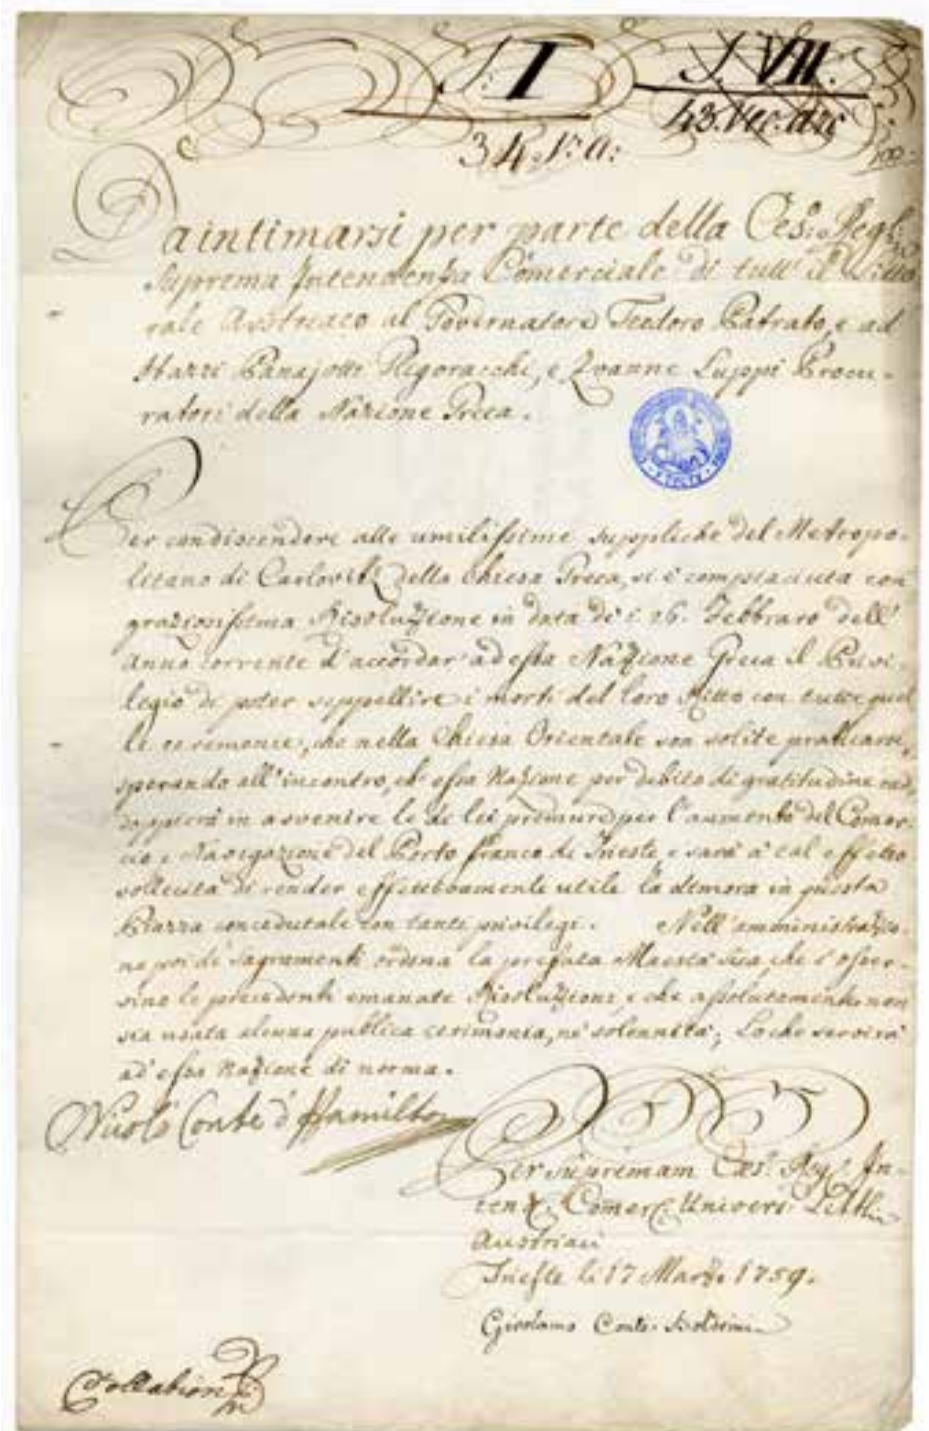 S. I
S. VII.
34.
Da intimarsi per parte della Ces.a Reg.
Suprema Intendenza Comerciale di tutt' il Litto
rale Austriaco al Governatore Teodoro Petrato, e ad
Hazzi Panajotti Pigoracchi, e Zvanne Luppi Procu-
ratori della Nazione Greca.
Per condiscendere alle umilissime suppliche del Metropo-
litano di Carlovitz della Chiesa Greca, si è compiaciuta con
graziosissima Risoluzione in data di 26. Febbraro dell'
Anno corrente d'accordar ad essa Nazione Greca il Privi-
legio di poter seppellire i morti del loro Ritto con tutte quel
le ceremonie, che nella Chiesa Orientale son solite praticarsi,
sperando all'incontro, ch' essa Nazione per debito di gratitudine rad
doppierà in avvenire le di lei premure per l'aumento del Comer-
cio e Navigazione del Porto franco di Trieste, e sarà à tal effetto
sollecita di render effettivamente utile la dimora in questa
Piazza concedutale con tanti privilegi. Nell' amministrazio-
ne poi de' Sagramenti ordina la prefata Maestà Sua, che s' osser-
vino le precedenti emanate Risoluzioni, e che assolutamente non
sia usata alcuna publica cerimonia, nè solennità; Loche servirà
ad essa Nazione di norma.
Nicolò Conte d' Hamilton
Per Supremam Cæs. Reg. In-
tend. Comerc. Univers. Litt.
Austriaci
Trieste li 17 Marzo 1759.
Girolamo Conte
Collation